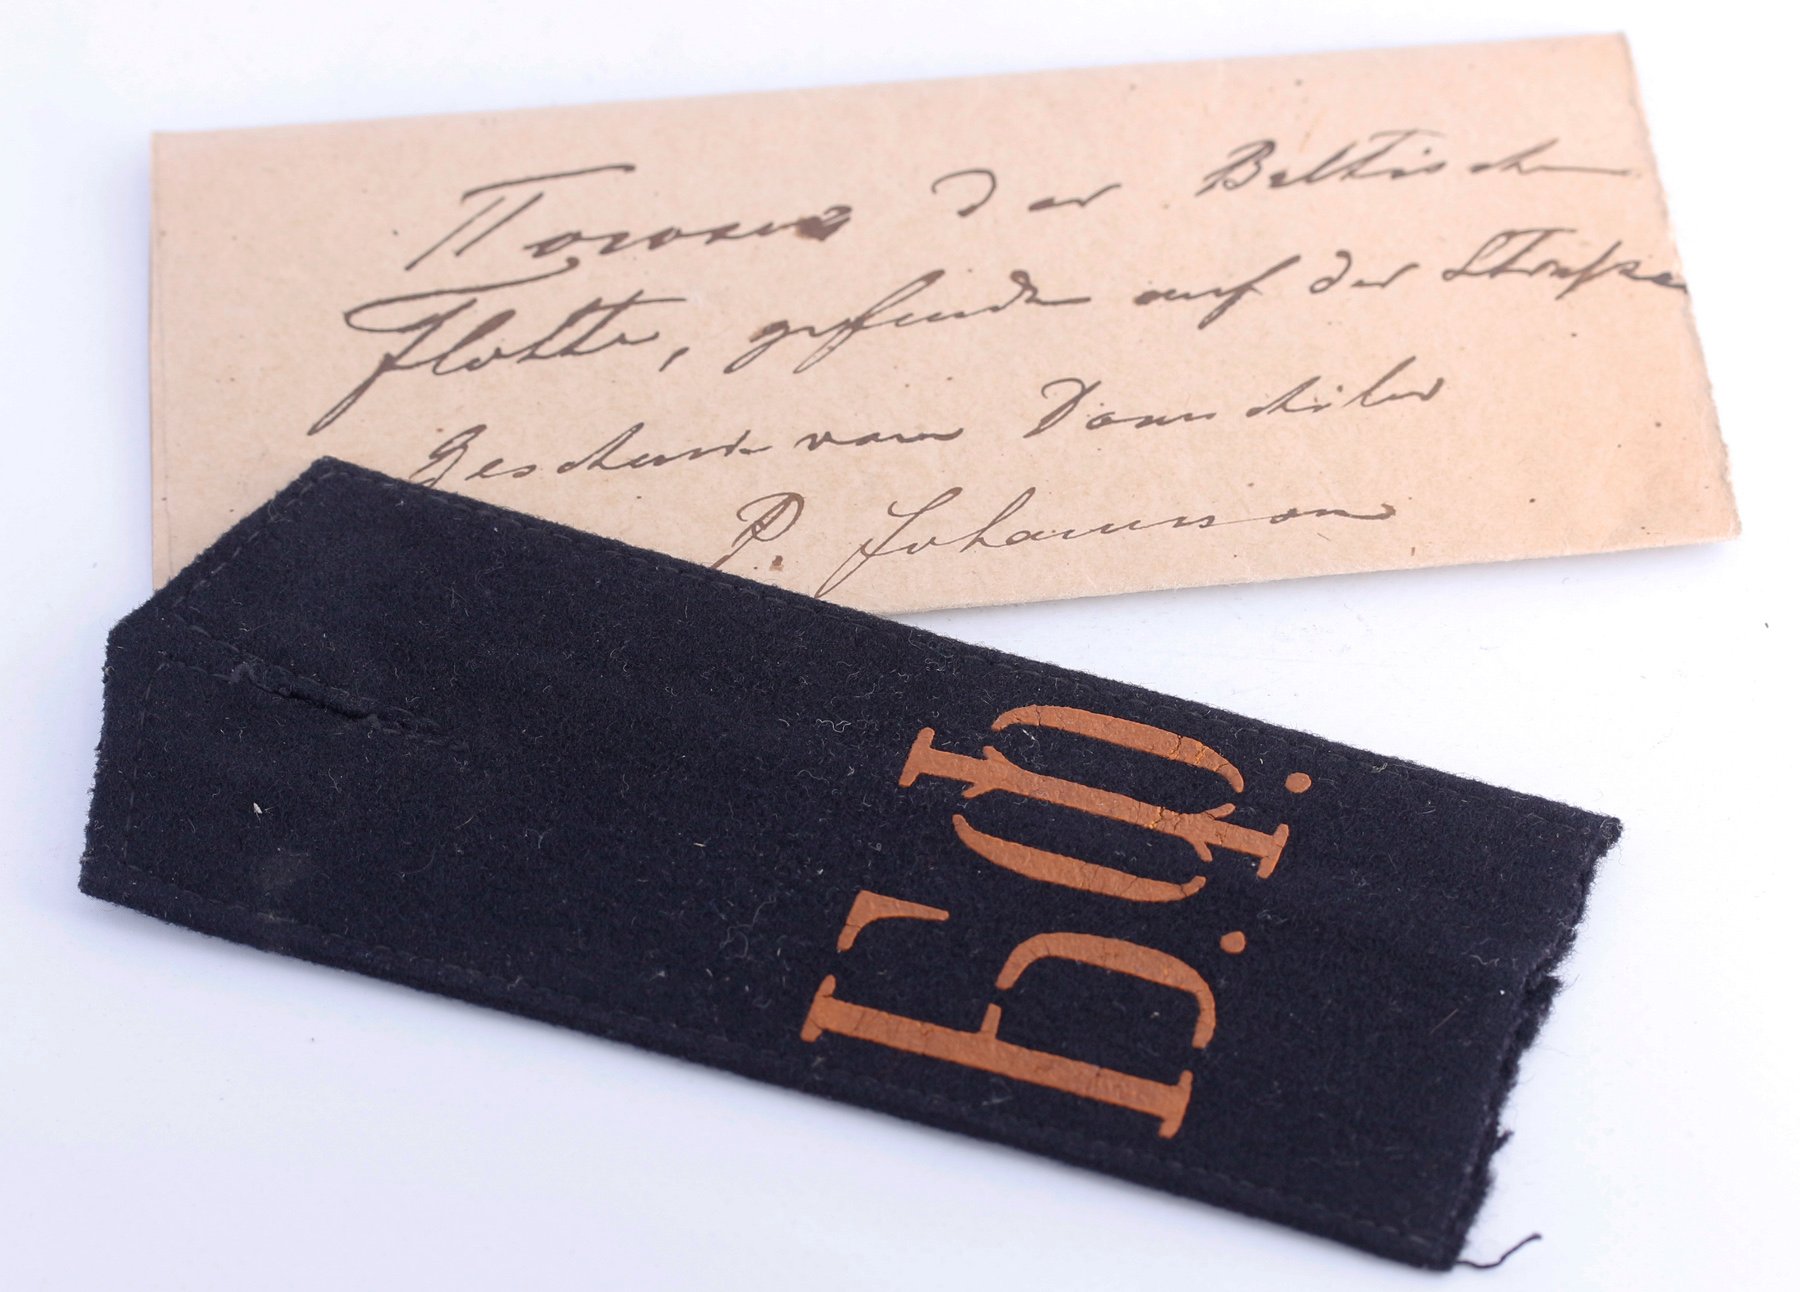 Погонъ der Baltischen
Flotte, gefunden auf der Straße
Geschenk vom Domschüler
P. Johannson
Б.Ф.